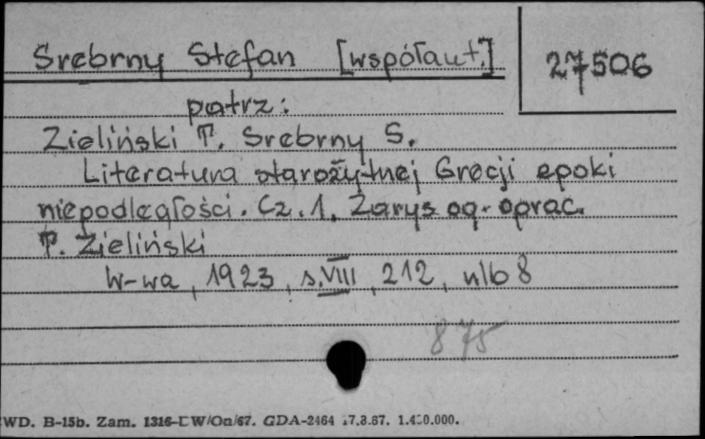 Srebrny Stefan [współaut.]
27506
patrz:
Zieliński T. Srebrny S.
Literatura starożytnej Grecji epoki
niepodległości. Cz. 1. Zarys og. oprac.
T. Zieliński
W-wa, 1923, s. VIII, 212, nlb 8
8 75
WD. B-15b. Zam. 1316-LW/On/67. GDA-2464 17.8.67.